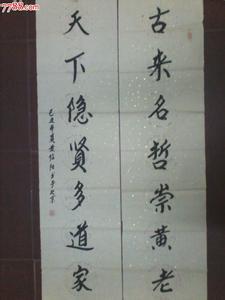 古来名哲崇黄老
天下隐贤多道家
7788.com